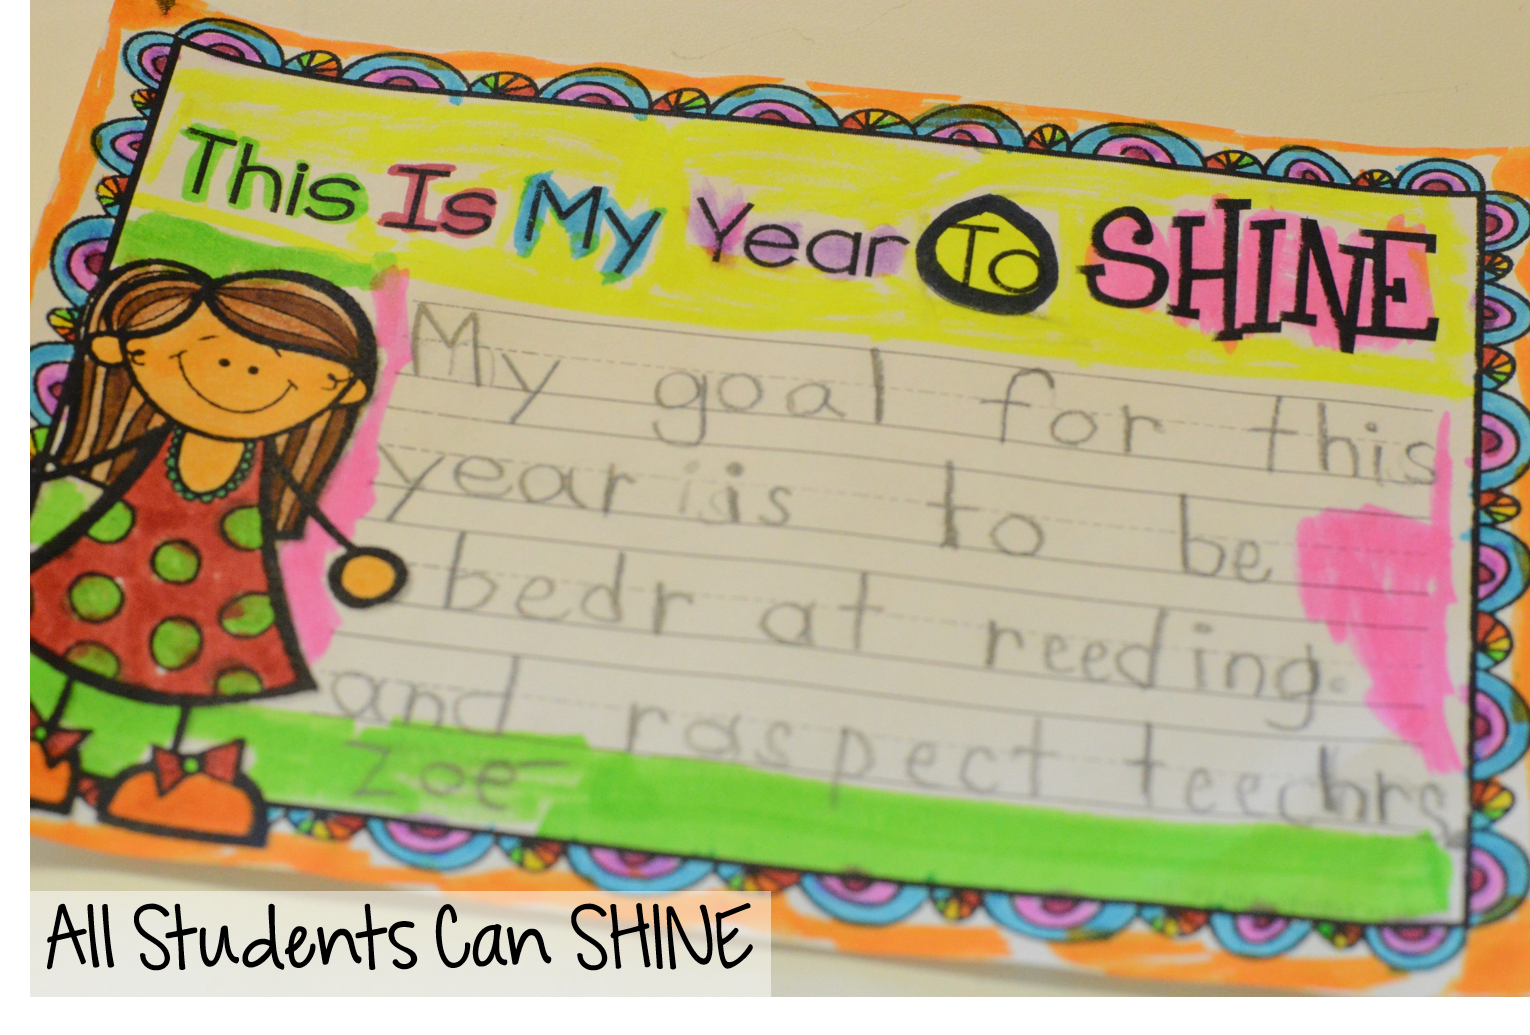 This Is My Year To SHINE
My goal for this
year is to be
bedr at reeding.
and raspect teechrs
Zoe
All Students Can SHINE